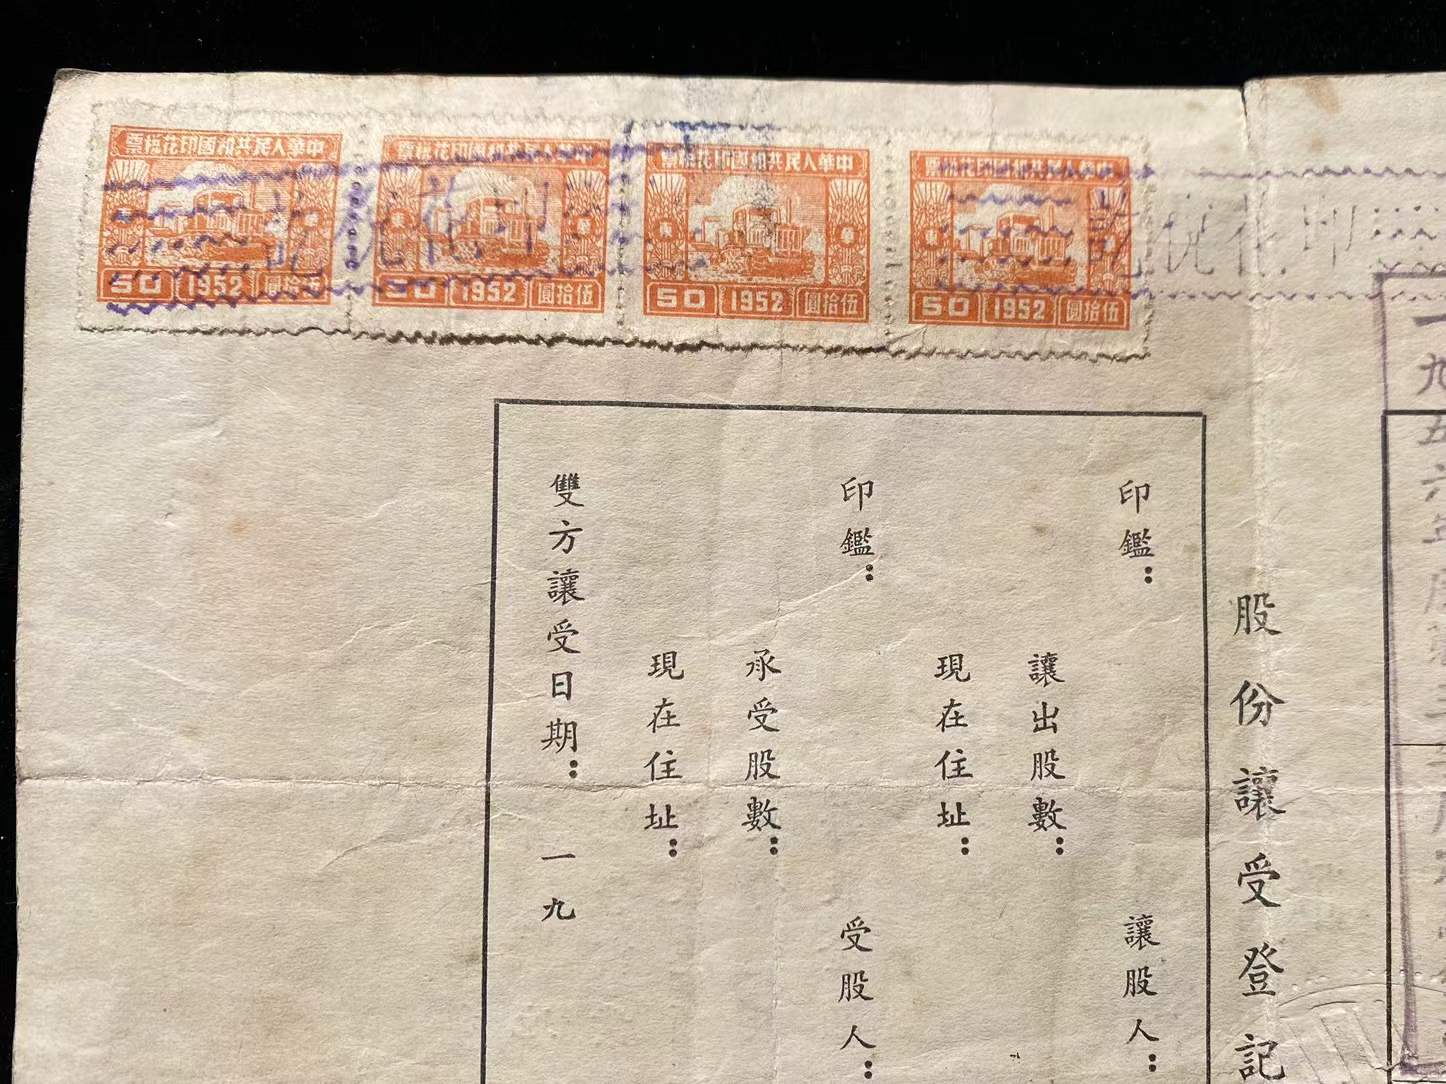 中華人民共和國印花稅票
50 1952 伍拾圓
中華人民共和國印花稅票
50 1952 伍拾圓
中華人民共和國印花稅票
50 1952 伍拾圓
中華人民共和國印花稅票
50 1952 伍拾圓
印花稅訖
印花稅訖
一九五六年
股份讓受登記
印鑑：
讓股人：
讓出股數：
現在住址：
印鑑：
受股人：
承受股數：
現在住址：
雙方讓受日期：一九